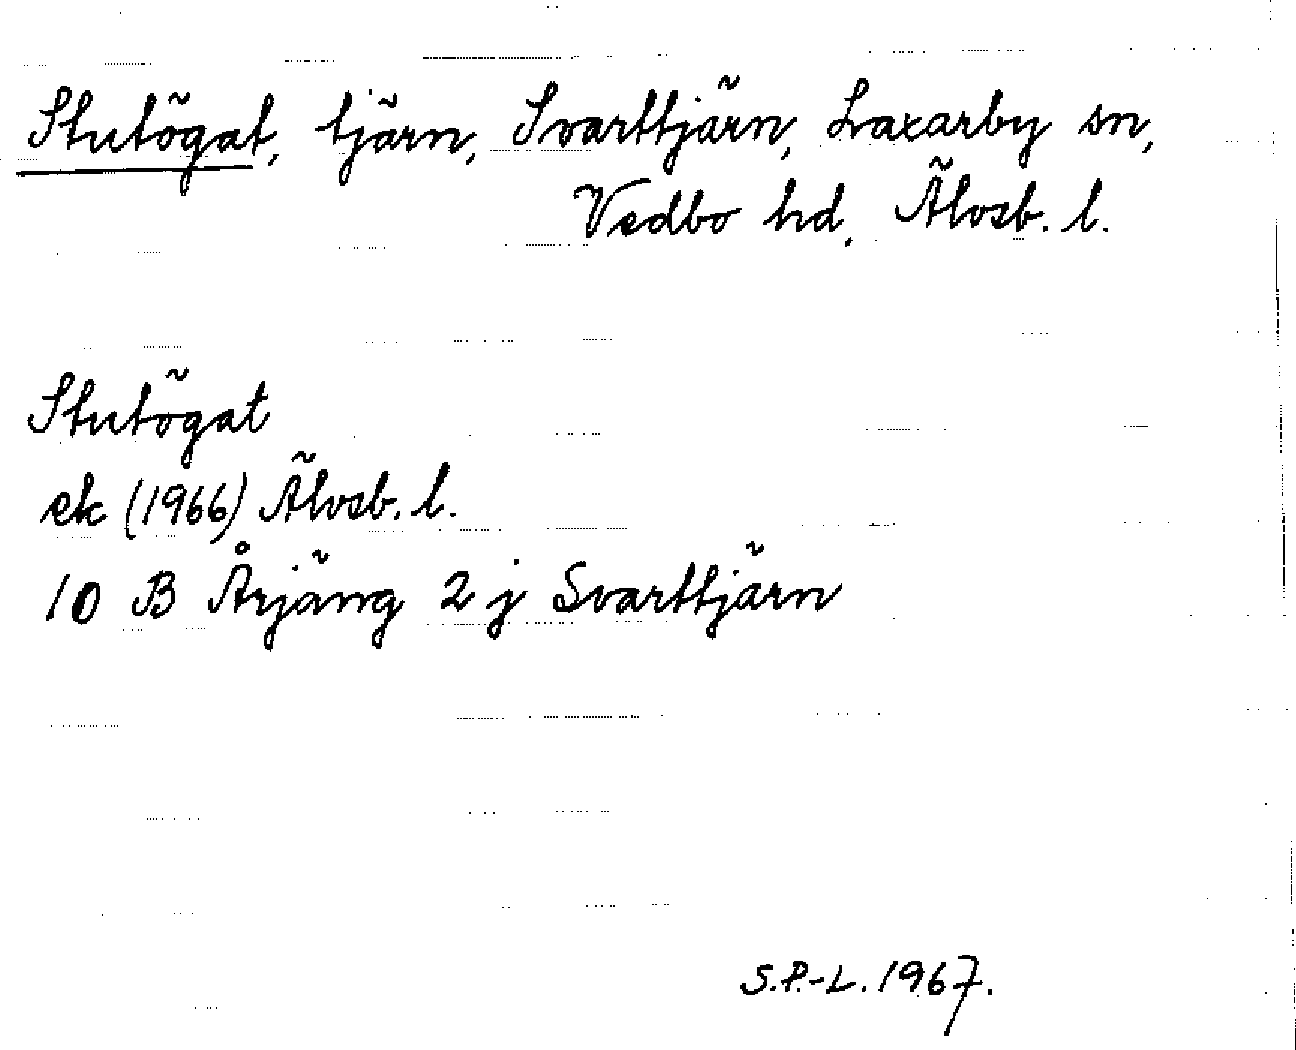 Stutögat, tjärn, Svarttjärn, Laxarby sn,
Vedbo hd, Älvsb. l.
Stutögat
ek (1966) Älvsb. l.
10 B Årjäng 2 j Svarttjärn
S.P.-L. 1967.